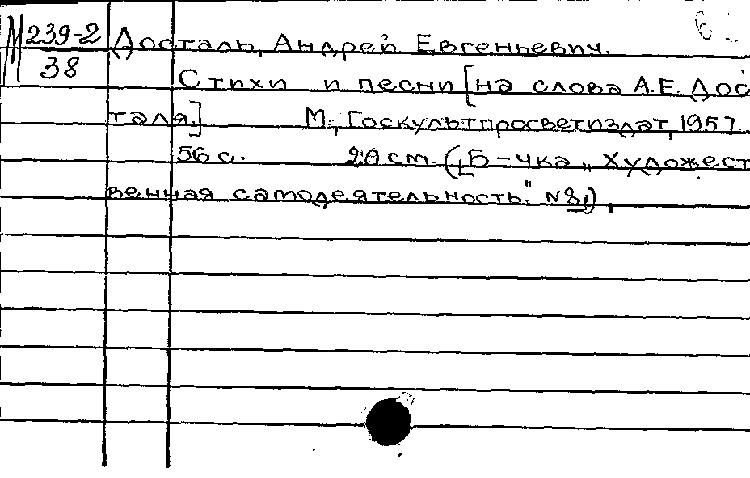 М 239-2 Досталь, Андрей Евгеньевич.
38
Стихи и песни [на слова А.Е. Дос
таля.] М., Госкультпросветиздат, 1957.
56 с. 20 см. (Б-чка „Художест
венная самодеятельность." №8)